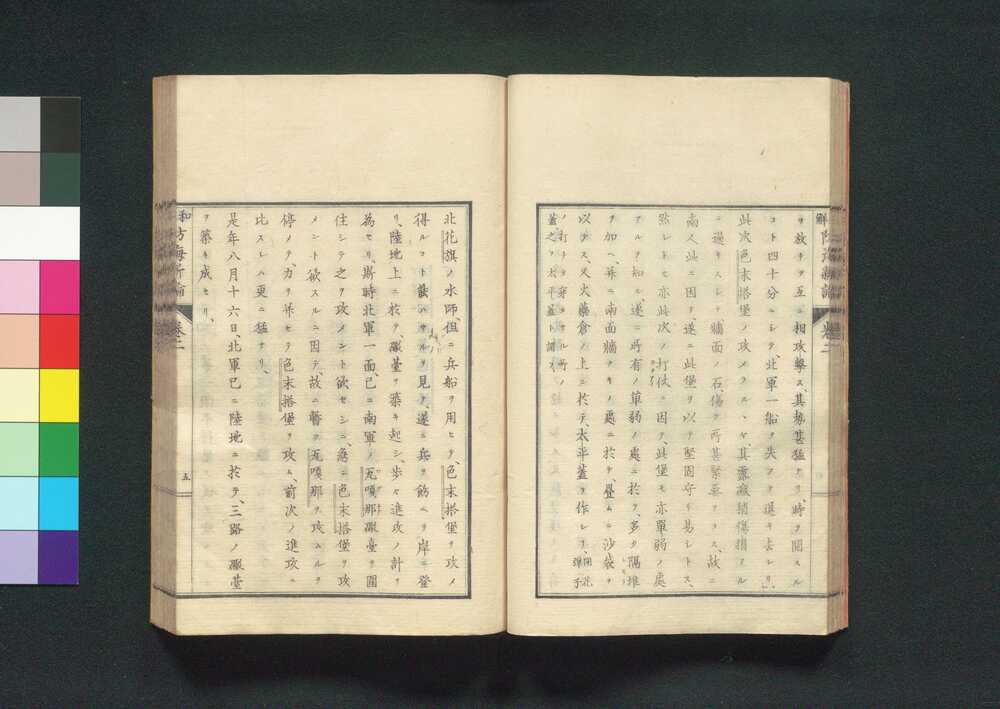 ヲ放チテ互ニ相攻撃ス、其勢甚猛ナリ、時ヲ閲スル
コト四十分ニシテ、北軍一船ヲ失フテ退キ去レリ、
此次色末塔堡ノ攻メラルヽヤ、其露敵稍傷損スル
ニ過キスレ𪜈牆面ノ石傷ヲ再甚緊要ナラス、故ニ
南人此ニ因テ遂ニ此堡ヲ以テ堅固守リ易シトス、
然レトモ亦此次ノ打仗ニ因テ、此堡モ亦單弱ノ處
アルヲ知ル、遂ニ所有ノ單弱ノ處ニ於テ、多ク隔堆
ヲ加ヘ、并ニ南面牆ヲキノ處ニ於テ、疊ムニ沙袋ヲ
以テス、又火藥倉ノ上ニ於テ、太平蓋ヲ作レリ、開花彈子
ノ打ヲ穿ツナル所ノ蓋之ヲ太平蓋ト謂フ
解防海新論 卷二
北花旗ノ水師、但ニ兵船ヲ用ヒテ、色末塔堡ヲ攻メ
得ルコト能ハサルヲ見テ、遂ニ兵ヲ飭ヘテ岸ニ登
リ、陸地上ニ於テ礮臺ヲ築キ起シ、歩々進攻ノ計ヲ
為セリ、斯時北軍一面、已ニ南軍ノ瓦嗄那礮臺ヲ圍
住シテ之ヲ攻メント欲セシニ、急ニ色末塔堡ヲ攻
メント欲スルニ因テ、故ニ暫ク瓦嗄那ヲ攻ムルヲ
停ノテ、力ヲ并セテ色末塔堡ヲ攻ム、前次ノ進攻ニ
比スレハ更ニ猛ナリ、
是年八月十六日、北軍已ニ陸地ニ於テ、三路ノ礮臺
ヲ築キ成セリ、
和 防海新論 卷二
五